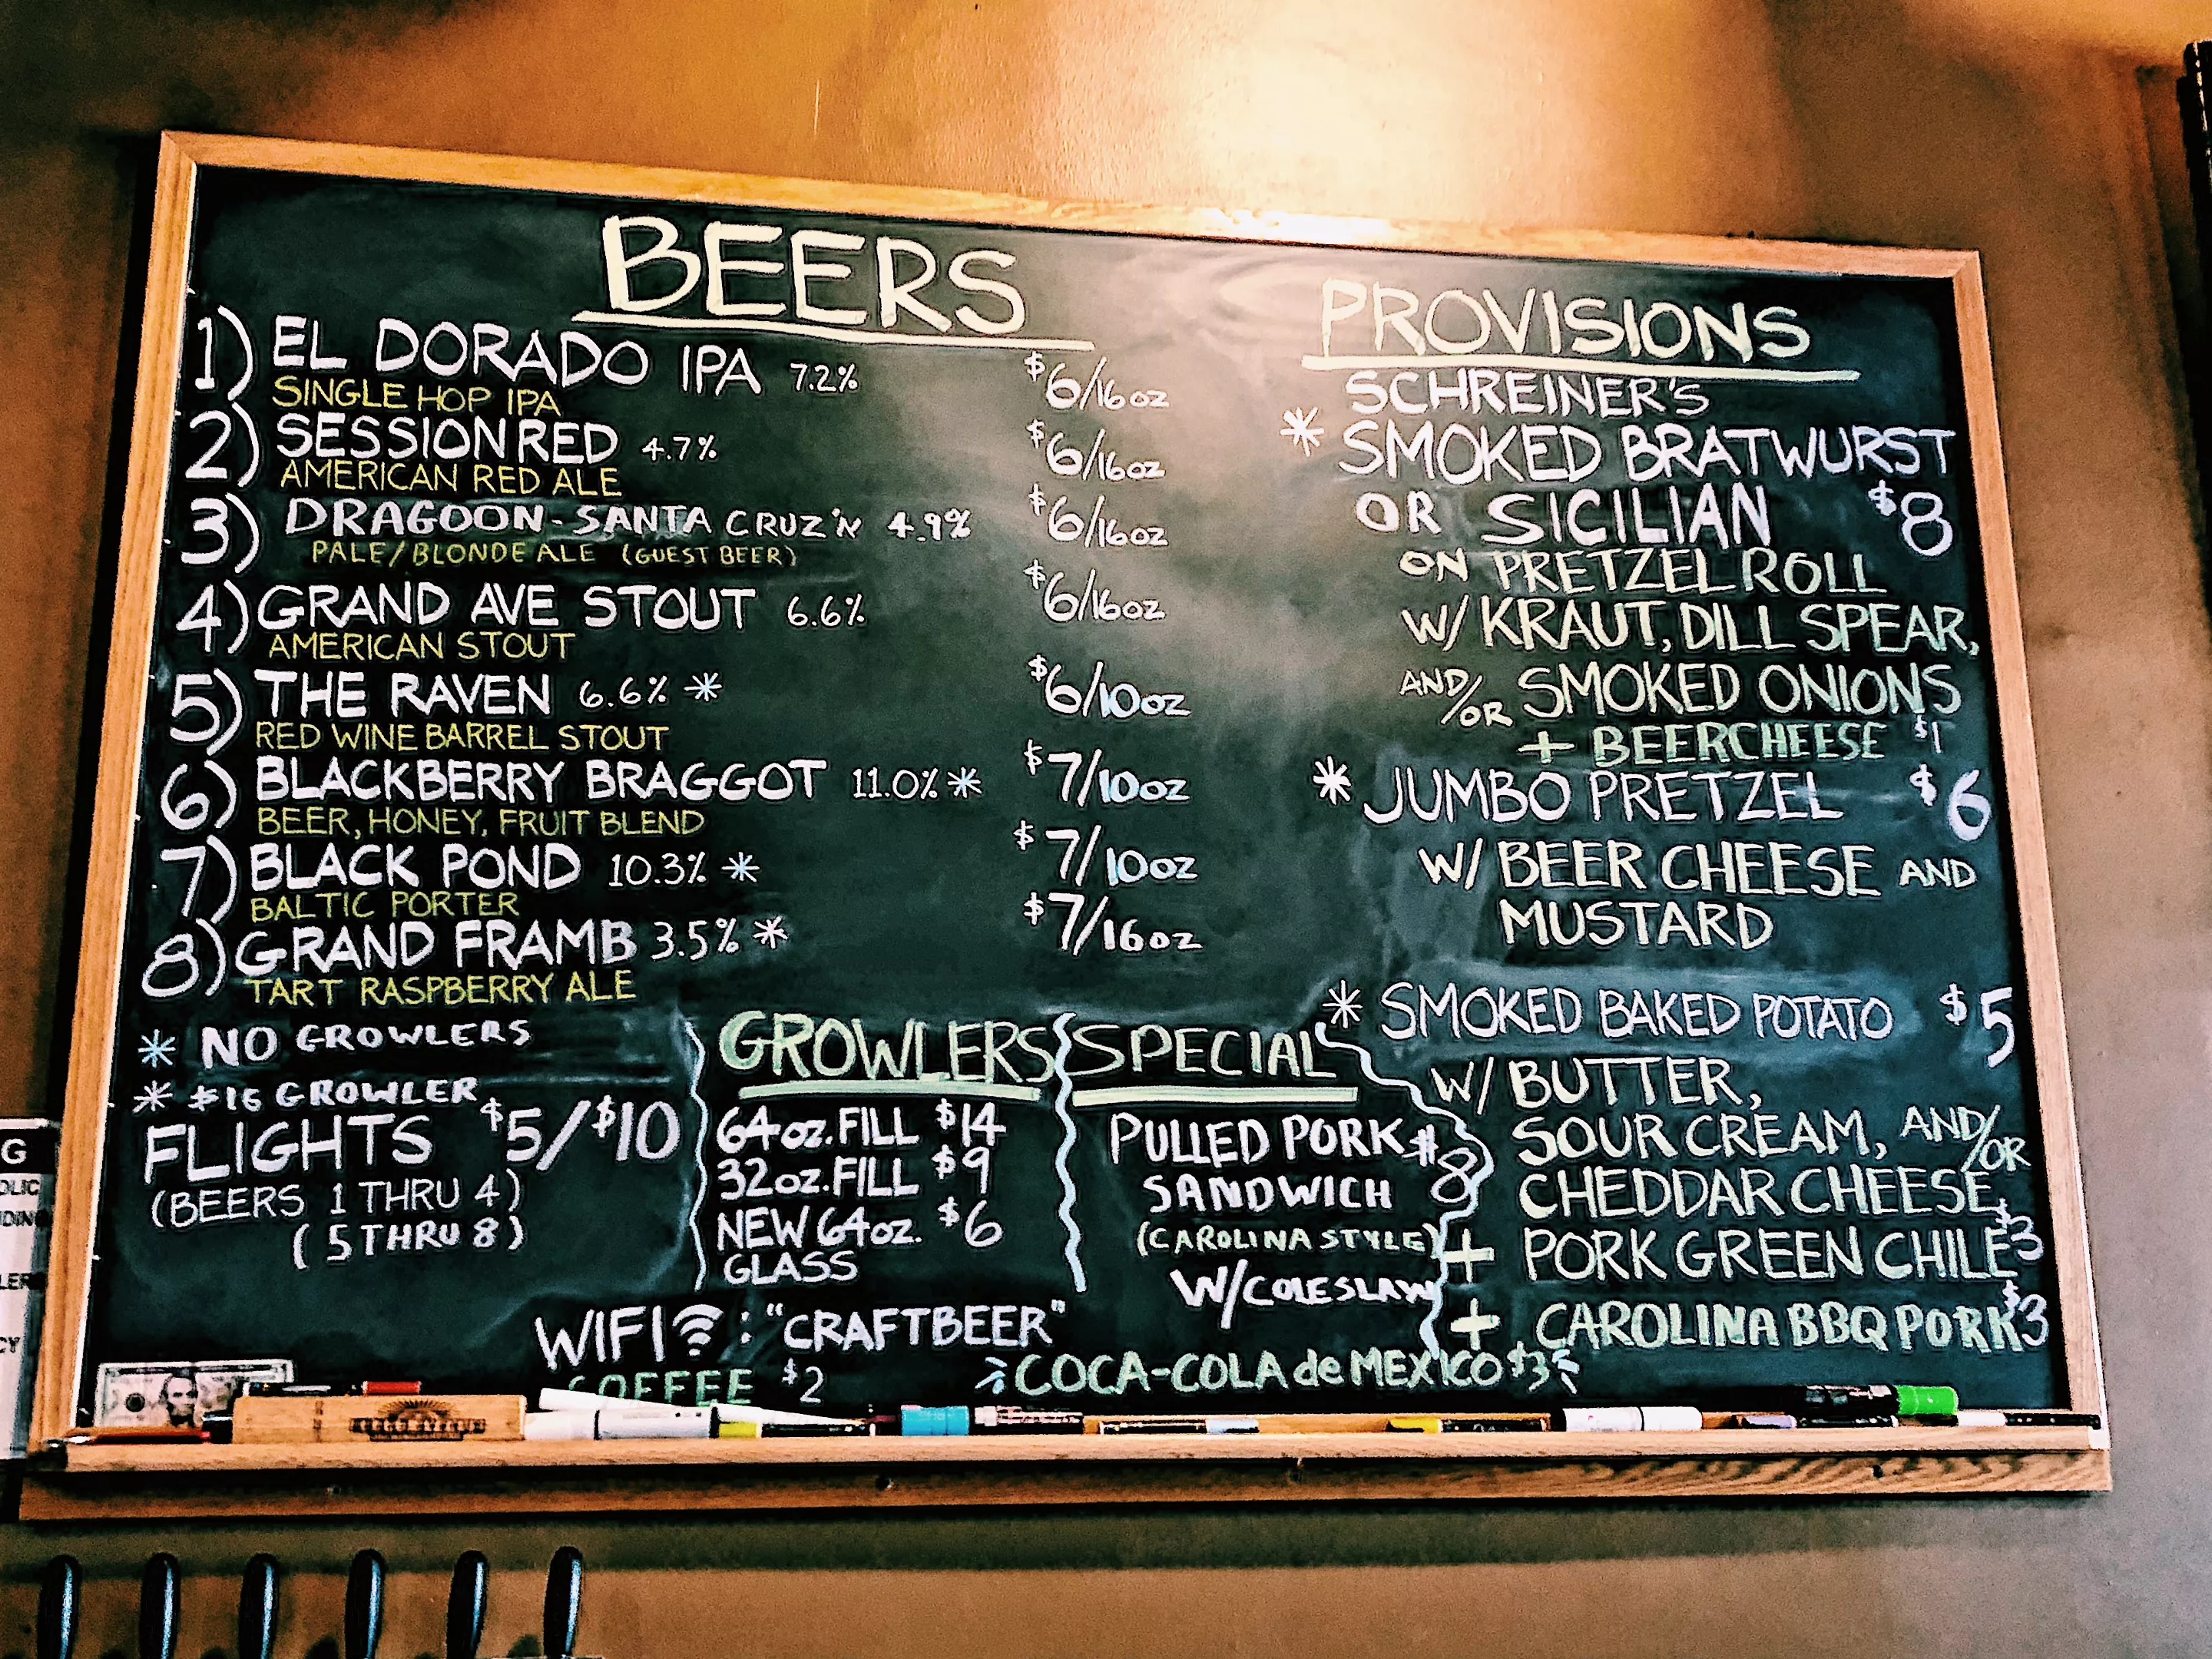 BEERS
1) EL DORADO IPA 7.2% $6/16oz
SINGLE HOP IPA
2) SESSION RED 4.7% $6/16oz
AMERICAN RED ALE
3) DRAGOON-SANTA CRUZ'N 4.9% $6/16oz
PALE/BLONDE ALE (GUEST BEER)
4) GRAND AVE STOUT 6.6% $6/16oz
AMERICAN STOUT
5) THE RAVEN 6.6% * $6/10oz
RED WINE BARREL STOUT
6) BLACKBERRY BRAGGOT 11.0% * $7/10oz
BEER, HONEY, FRUIT BLEND
7) BLACK POND 10.3% * $7/10oz
BALTIC PORTER
8) GRAND FRAMB 3.5% * $7/16oz
TART RASPBERRY ALE
* NO GROWLERS
* $16 GROWLER
FLIGHTS $5/$10
(BEERS 1 THRU 4)
(5 THRU 8)
GROWLERS
64oz. FILL $14
32oz. FILL $9
NEW 64oz. $6
GLASS
SPECIAL
PULLED PORK $8
SANDWICH
(CAROLINA STYLE)
W/COLESLAW
PROVISIONS
SCHREINER'S
* SMOKED BRATWURST
OR SICILIAN $8
ON PRETZEL ROLL
W/ KRAUT, DILL SPEAR,
AND/OR SMOKED ONIONS
+ BEERCHEESE $1
* JUMBO PRETZEL $6
W/ BEER CHEESE AND
MUSTARD
* SMOKED BAKED POTATO $5
W/ BUTTER,
SOUR CREAM, AND/OR
CHEDDAR CHEESE
+ PORK GREEN CHILE $3
+ CAROLINA BBQ PORK $3
WIFI: "CRAFTBEER"
COFFEE $2
COCA-COLA de MEXICO $3
G